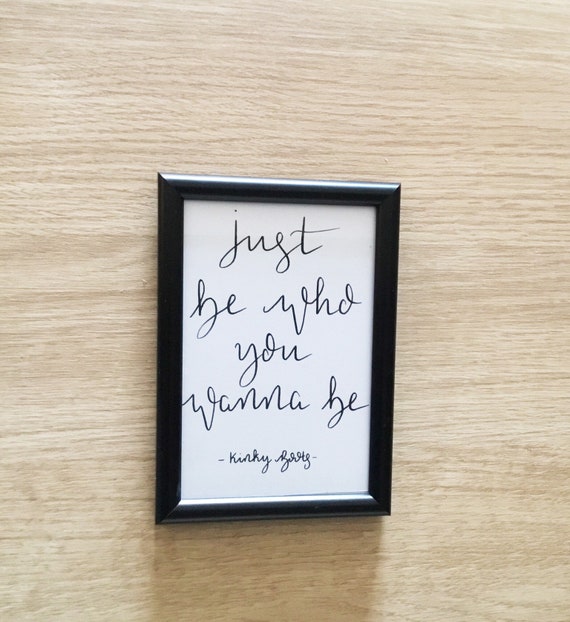 just
be who
you
wanna be
- Kinky Boots -